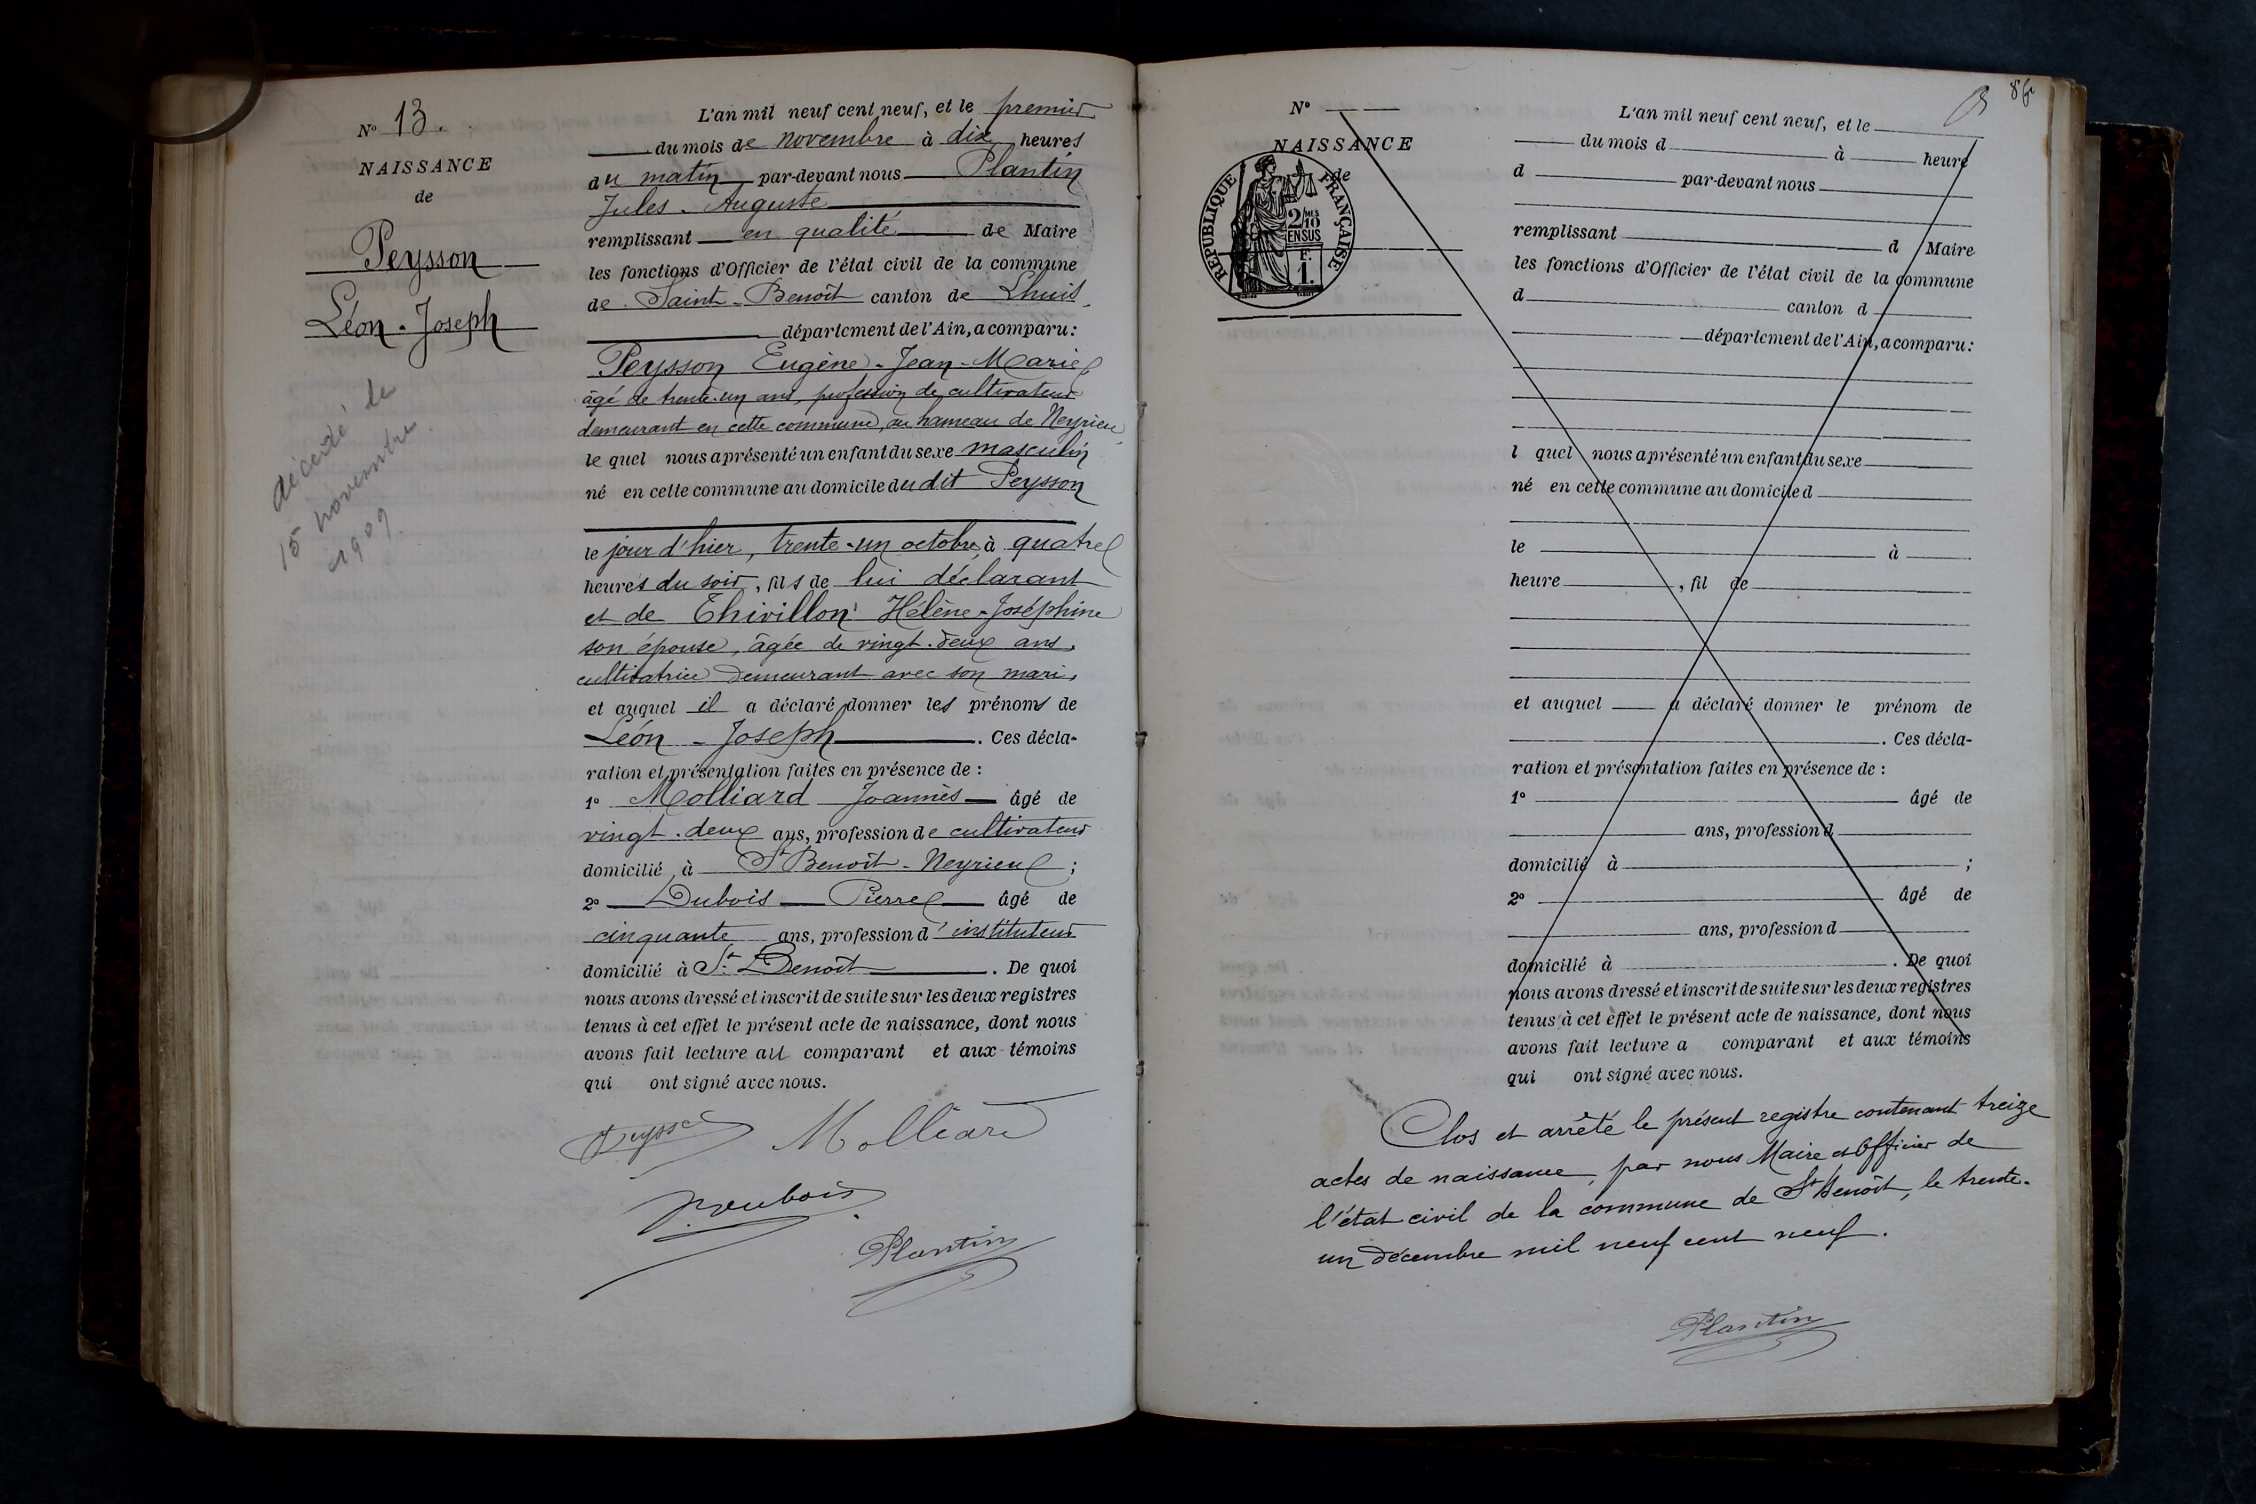 N° 13.
NAISSANCE
de
Peysson
Léon - Joseph
décédé le
15 novembre
1909
L'an mil neuf cent neuf, et le premier
du mois de novembre à dix heures
du matin par-devant nous Plantin
Jules - Auguste
remplissant en qualité de Maire
les fonctions d'Officier de l'état civil de la commune
de Saint-Benoît canton de Lhuis,
département de l'Ain, a comparu:
Peysson Eugène-Jean-Marie
âgé de trente-un ans, profession de cultivateur
demeurant en cette commune, au hameau de Neyrieu
le quel nous a présenté un enfant du sexe masculin
né en cette commune au domicile du dit Peysson
le jour d'hier, trente-un octobre à quatre
heures du soir, fils de lui déclarant
et de Thivillon Hélène-Joséphine
son épouse, âgée de vingt-deux ans,
cultivatrice demeurant avec son mari,
et auquel il a déclaré donner les prénoms de
Léon - Joseph. Ces décla-
ration et présentation faites en présence de :
1° Molliard Joannès âgé de
vingt-deux ans, profession de cultivateur
domicilié à St Benoît - Neyrieu ;
2° Dubois Pierre âgé de
cinquante ans, profession d'instituteur
domicilié à St Benoît. De quoi
nous avons dressé et inscrit de suite sur les deux registres
tenus à cet effet le présent acte de naissance, dont nous
avons fait lecture au comparant et aux témoins
qui ont signé avec nous.
Peysson Molliard
P. Dubois
Plantin
86
N°
NAISSANCE
de
RÉPUBLIQUE FRANÇAISE
2/10 MES
EN SUS
F.
1.
L'an mil neuf cent neuf, et le
du mois d à heure
d par-devant nous
remplissant d Maire
les fonctions d'Officier de l'état civil de la commune
d canton d
département de l'Ain, a comparu:
l quel nous a présenté un enfant du sexe
né en cette commune au domicile d
le à
heure , fil de
et auquel a déclaré donner le prénom de
. Ces décla-
ration et présentation faites en présence de :
1° âgé de
ans, profession d
domicilié à ;
2° âgé de
ans, profession d
domicilié à . De quoi
nous avons dressé et inscrit de suite sur les deux registres
tenus à cet effet le présent acte de naissance, dont nous
avons fait lecture a comparant et aux témoins
qui ont signé avec nous.
Clos et arrêté le présent registre contenant treize
actes de naissance, par nous Maire et Officier de
l'état civil de la commune de St Benoît, le trente-
un décembre mil neuf cent neuf.
Plantin